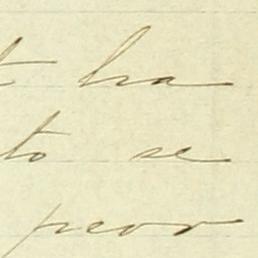 t ha
to se
peor